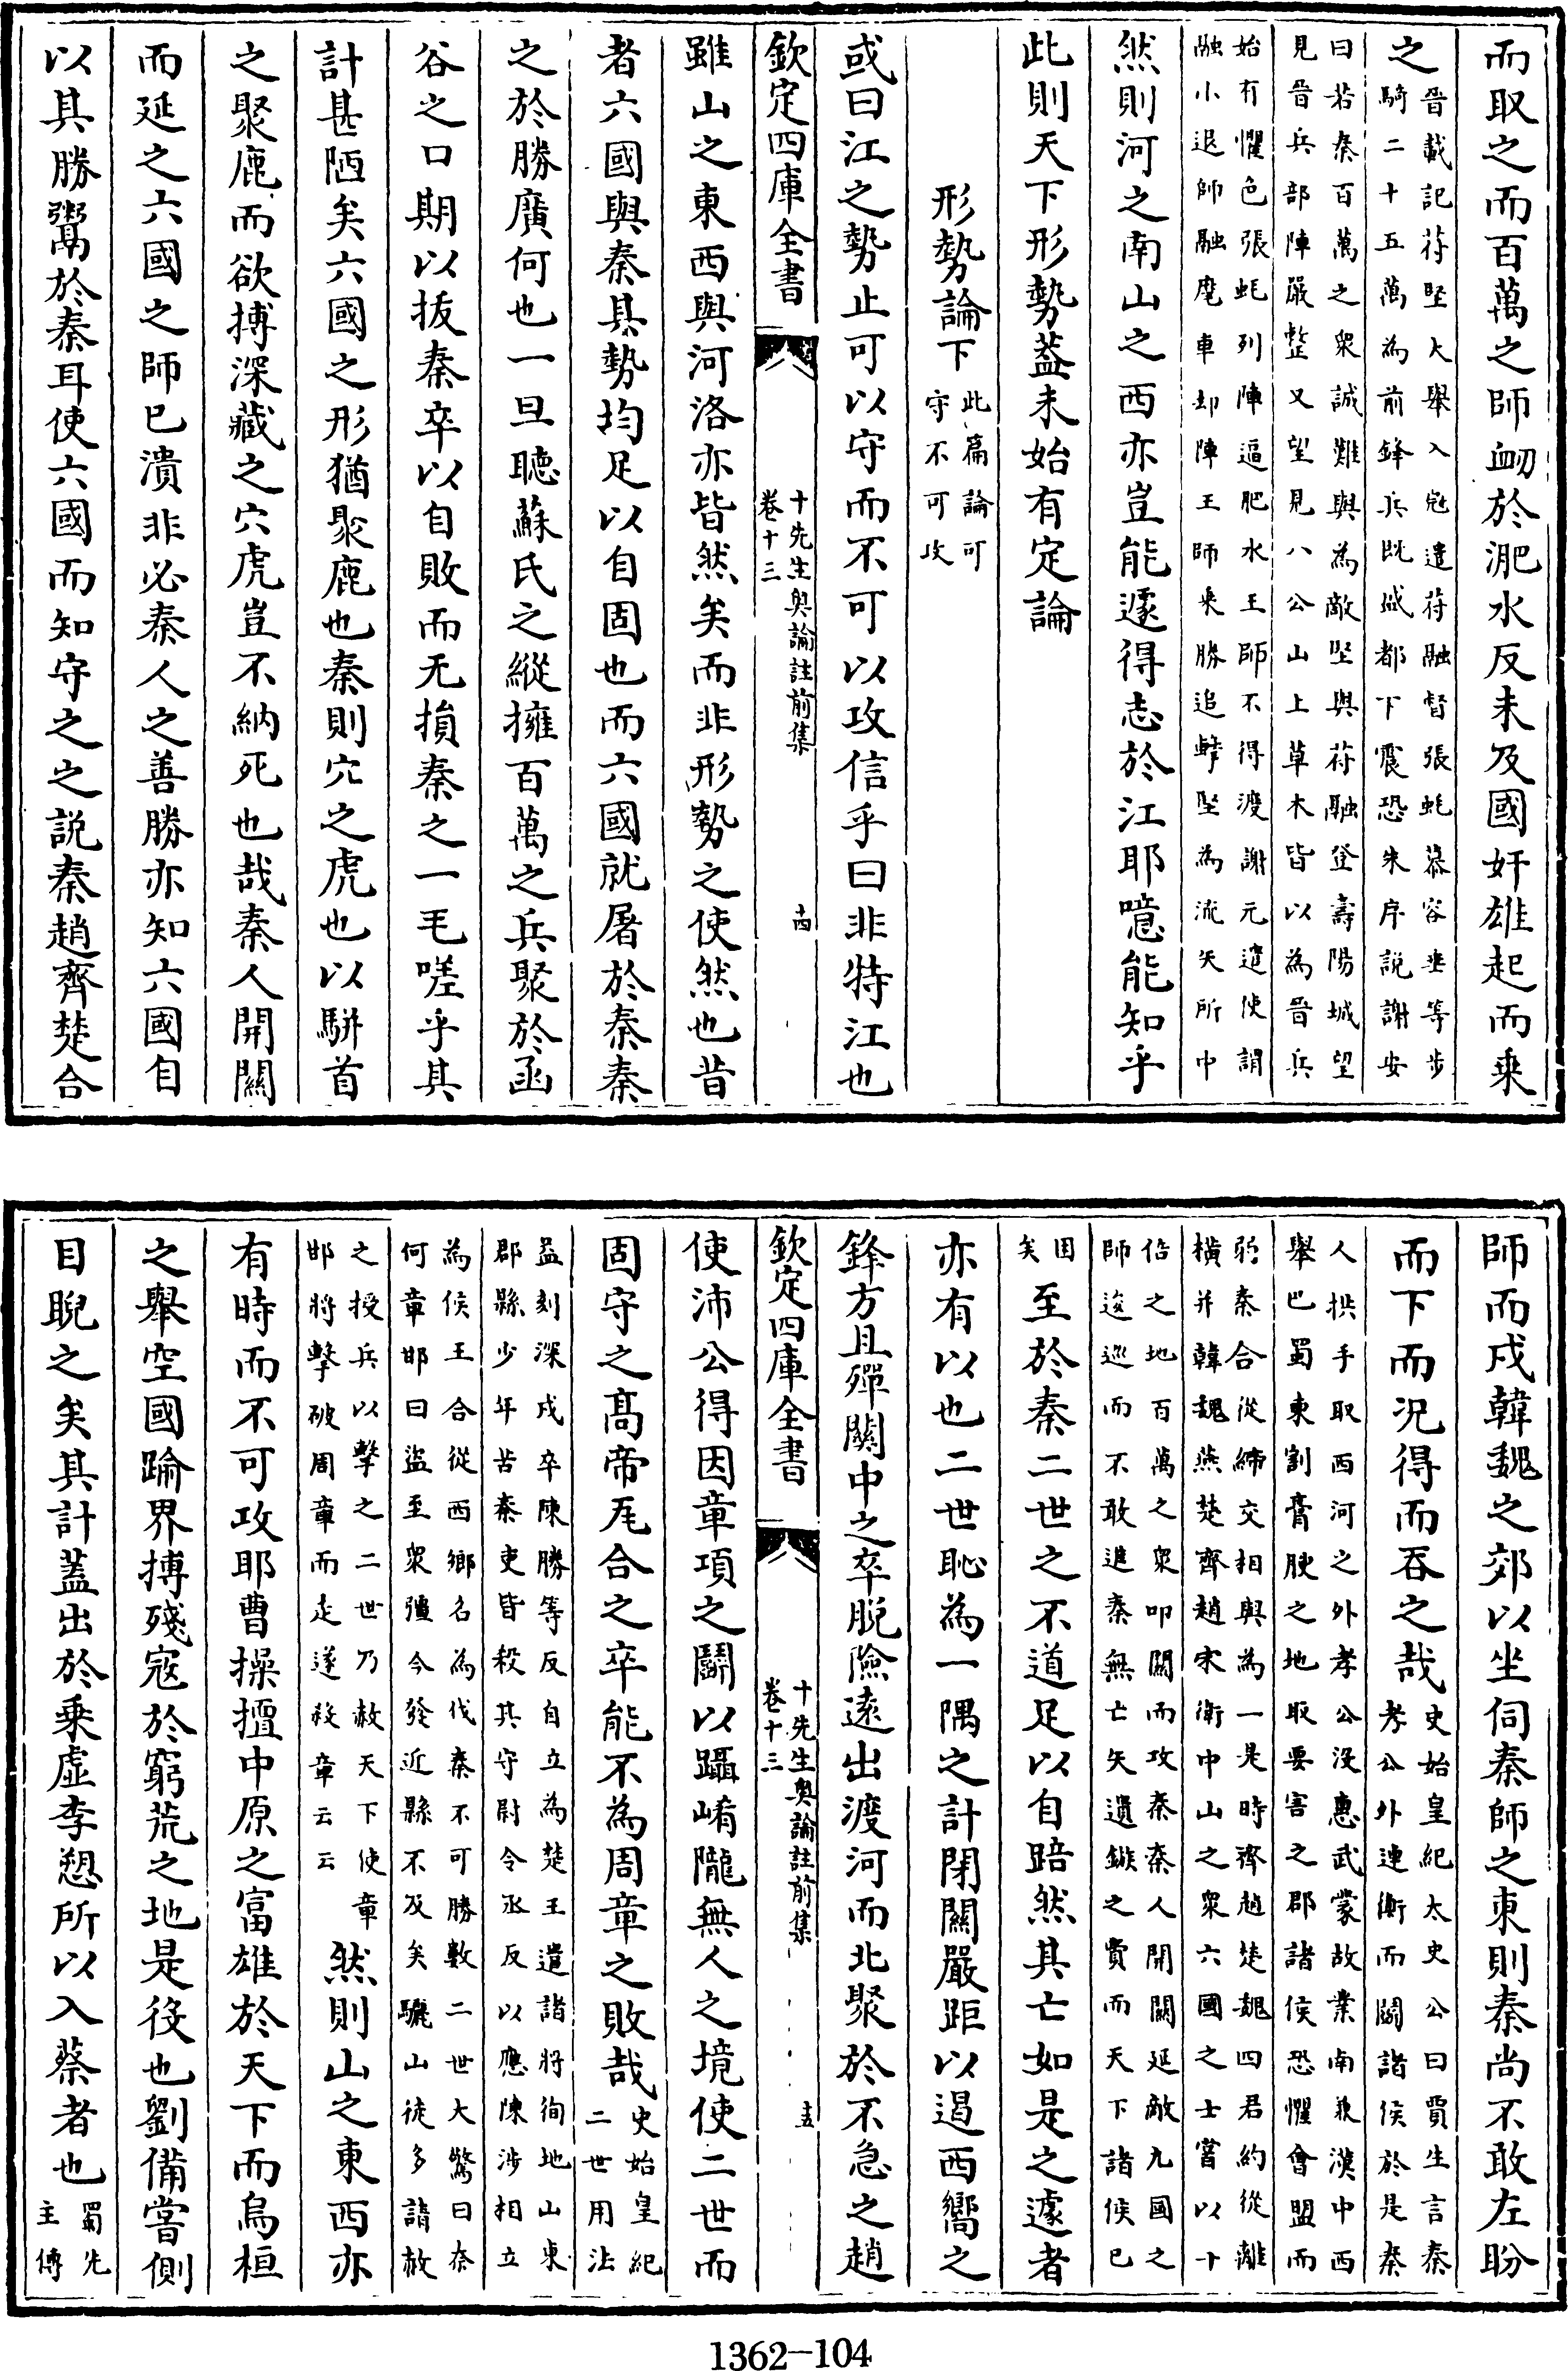 而取之而百萬之師衂於淝水反未及國奸雄起而乗
之晉載記苻堅大舉入宼遣苻融督張蚝慕容垂等步
騎二十五萬為前鋒兵既盛都下震恐朱序說謝安
曰若秦百萬之衆誠難與為敵堅與苻融登壽陽城望
見晉兵部陣嚴整又望見八公山上草木皆以為晉兵
始有懼色張蚝列陣逼肥水王師不得渡謝元遣使謂
融小退師融麾車却陣王師乗勝追擊堅為流矢所中
然則河之南山之西亦豈能遽得志於江耶噫能知乎
此則天下形勢葢未始有定論
形勢論下此篇論可
守不可攻
或曰江之勢止可以守而不可以攻信乎曰非特江也
欽定四庫全書
十先生奥論註前集
卷十三
十四
雖山之東西與河洛亦皆然矣而非形勢之使然也昔
者六國與秦其勢均足以自固也而六國就屠於秦秦
之於勝廣何也一旦聽蘇氏之縱擁百萬之兵聚於函
谷之口期以拔秦卒以自敗而无損秦之一毛嗟乎其
計甚陋矣六國之形猶聚鹿也秦則穴之虎也以駢首
之聚鹿而欲搏深藏之穴虎豈不納死也哉秦人開關
而延之六國之師已潰非必秦人之善勝亦知六國自
以其勝鬻於秦耳使六國而知守之之說秦趙齊楚合
師而戍韓魏之郊以坐伺秦師之東則秦尚不敢左盼
而下而況得而吞之哉史始皇紀太史公曰賈生言秦
孝公外連衡而鬭諸侯於是秦
人拱手取西河之外孝公沒惠武蒙故業南兼漢中西
舉巴蜀東割膏腴之地取要害之郡諸侯恐懼會盟而
弱秦合從締交相與為一是時齊趙楚魏四君約從離
橫并韓魏燕楚齊趙宋衛中山之衆六國之士嘗以十
倍之地百萬之衆叩關而攻秦秦人開關延敵九國之
師逡巡而不敢進秦無亡矢遺鏃之費而天下諸侯已
困
矣至於秦二世之不道足以自踣然其亡如是之遽者
亦有以也二世恥為一隅之計閉關嚴距以遏西嚮之
鋒方且殫關中之卒脫險遠出渡河而北聚於不急之趙
欽定四庫全書
十先生奥論註前集
卷十三
十五
使沛公得因章項之鬭以躡崤隴無人之境使二世而
固守之髙帝尨合之卒能不為周章之敗哉史始皇紀
二世用法
益刻深戍卒陳勝等反自立為楚王遣諸將徇地山東
郡縣少年苦秦吏皆殺其守尉令丞反以應陳涉相立
為侯王合從西鄉名為伐秦不可勝數二世大驚曰奈
何章邯曰盜至衆彊今發近縣不及矣驪山徒多請赦
之授兵以擊之二世乃赦天下使章
邯將擊破周章而走遂殺章云云然則山之東西亦
有時而不可攻耶曹操擅中原之富雄於天下而烏桓
之舉空國踰界搏殘寇於窮荒之地是役也劉備嘗側
目睨之矣其計蓋出於乗虛李愬所以入蔡者也蜀先
主傳
1362—104